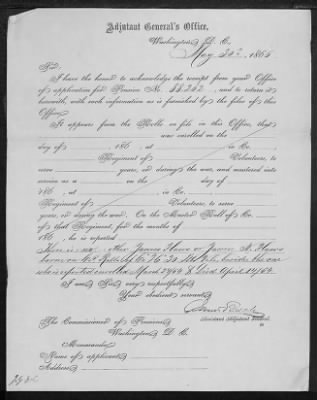 Adjutant General's Office,
Washington, D. C.
May 24th 1865
Sir:
I have the honor to acknowledge the receipt from your Office
of application for Pension No. and to return it
herewith, with such information as is furnished by the files of this
Office.
It appears from the Rolls on file in this Office, that
was enrolled on the
day of 186 , at in Co.
Regiment of Volunteers, to
serve years, or during the war, and mustered into
service as a on the day of
186 , at , in Co.
Regiment of Volunteers, to serve
years, or during the war. On the Muster Roll of Co.
of that Regiment, for the months of
186 , he is reported
There is no other James Howe or James
borne on Rolls of Co. besides the one
who is reported enrolled March 29/64 & died April 14/64.
I am Sir, very respectfully,
Your obedient servant,
Assistant Adjutant General.
The Commissioner of Pensions
Washington, D. C.
Memoranda:
Name of applicant,
Address